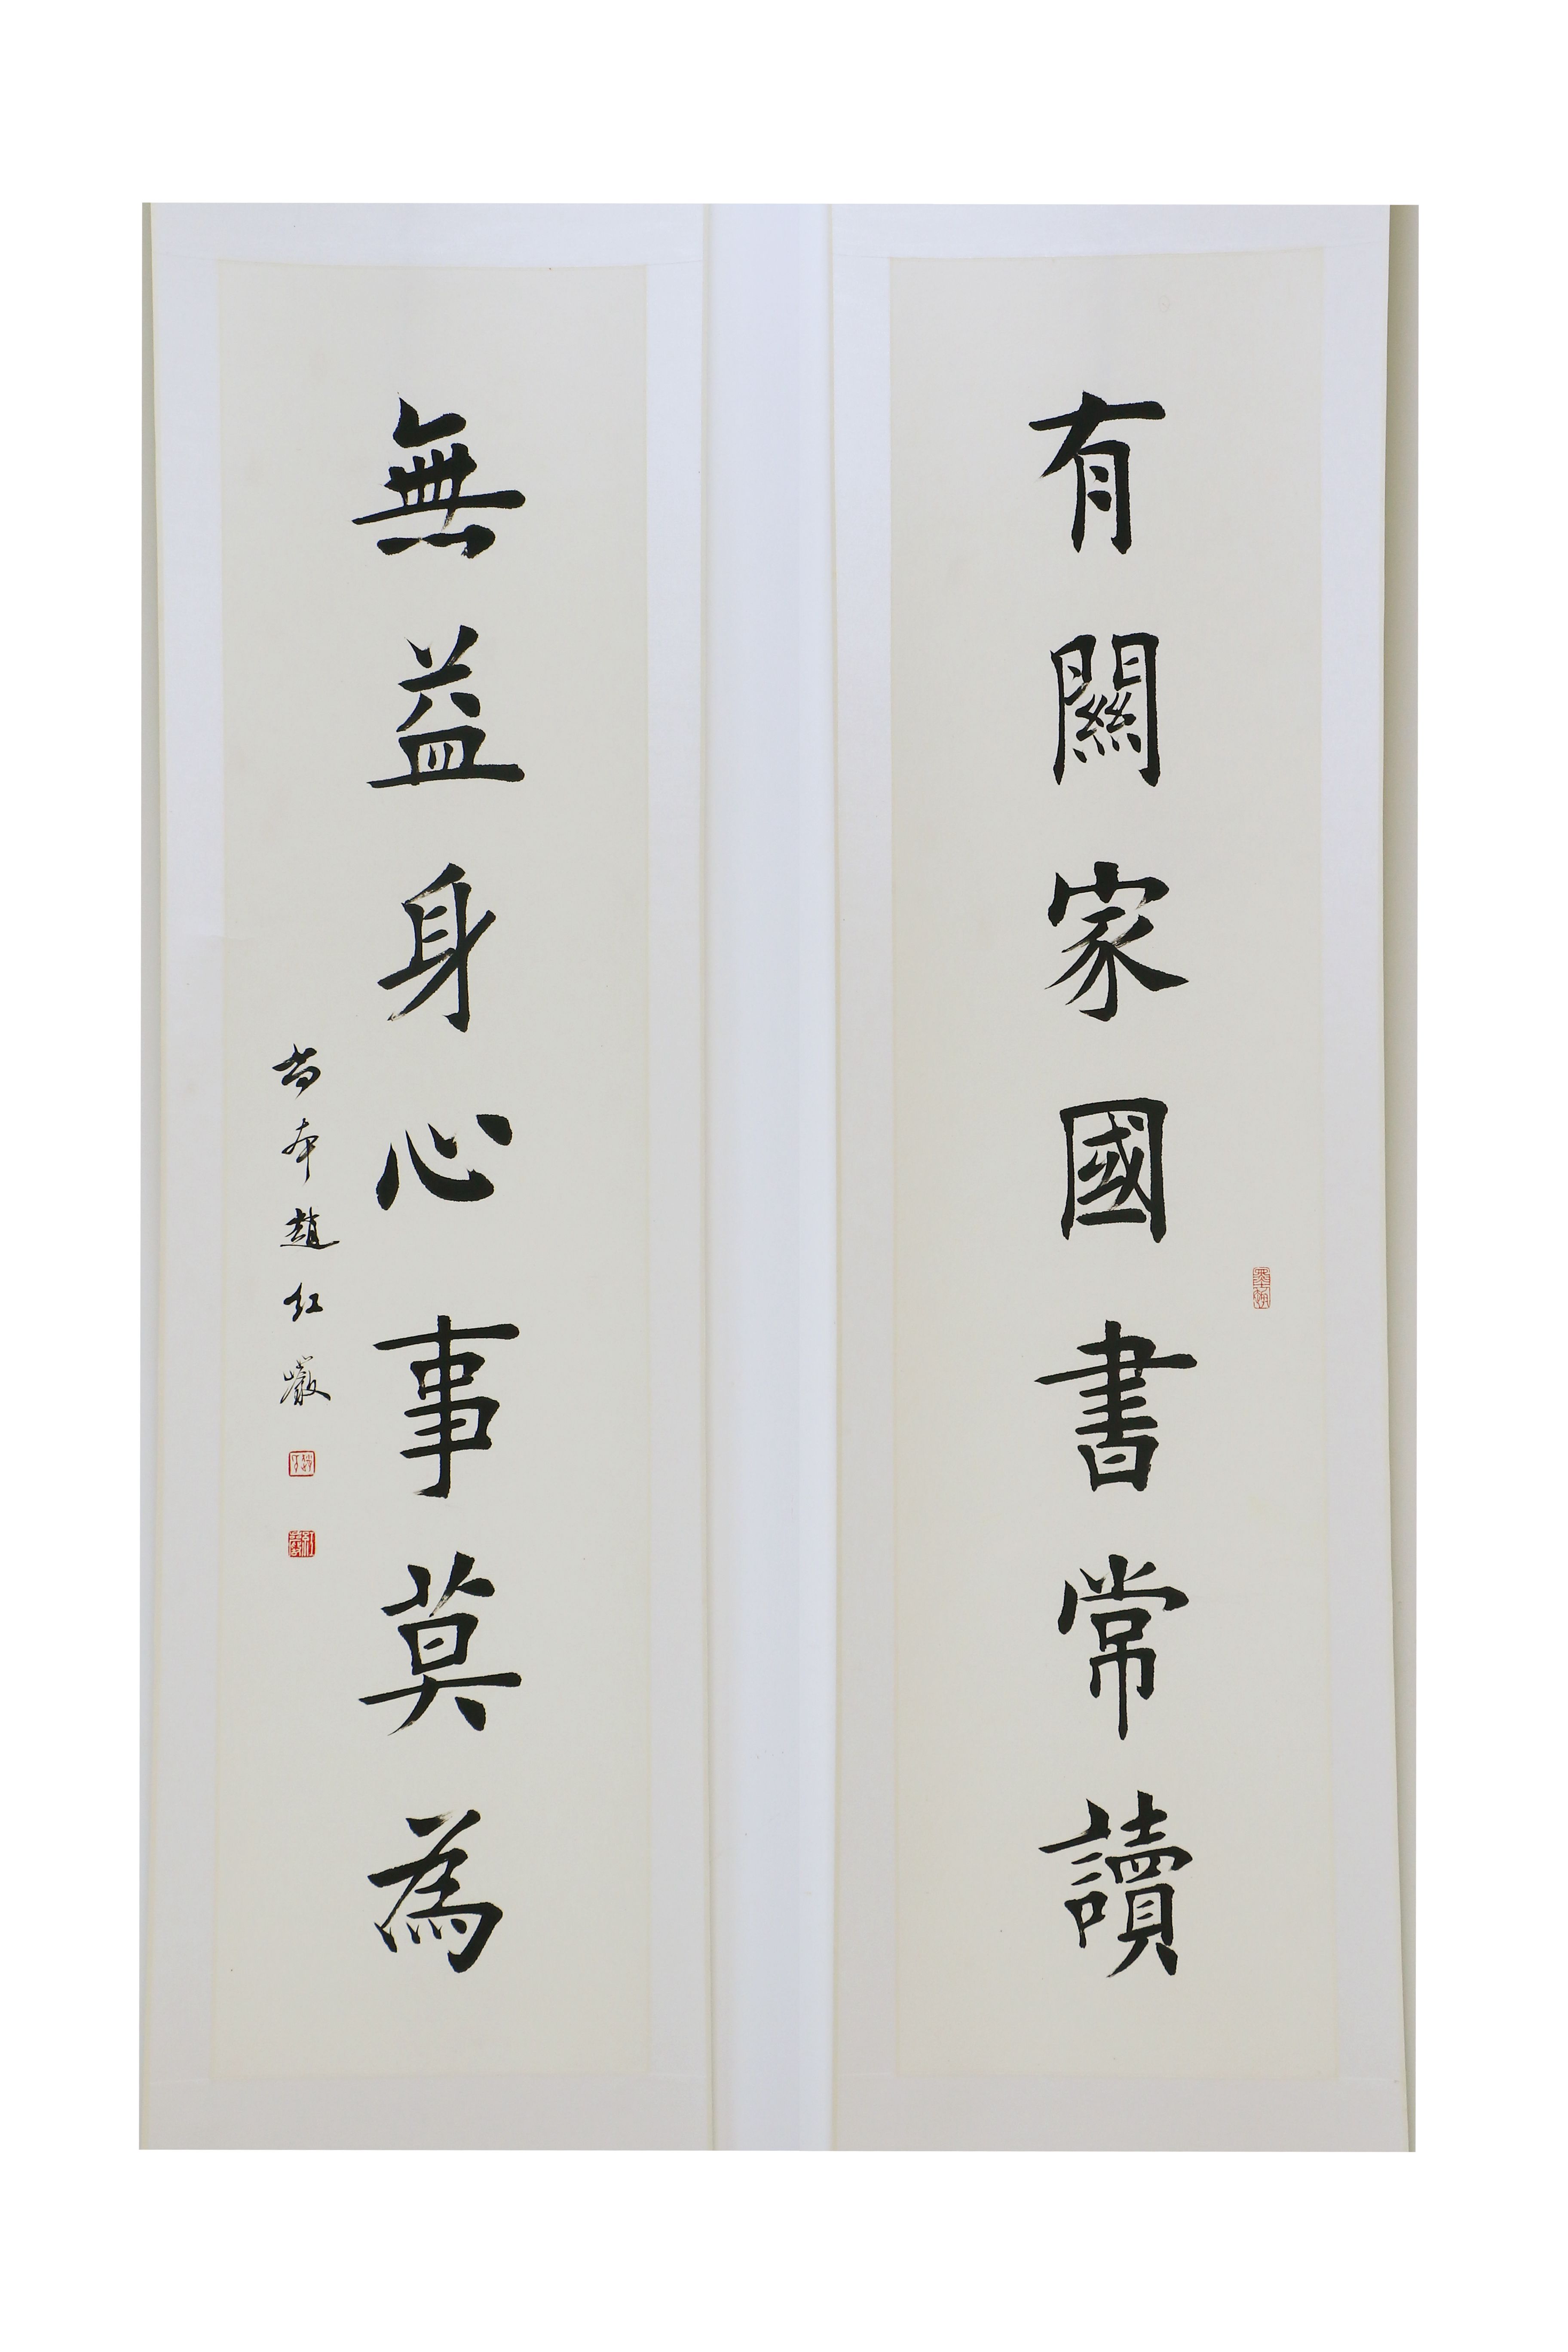 有關家國書常讀
無益身心事莫為
趙紅巖